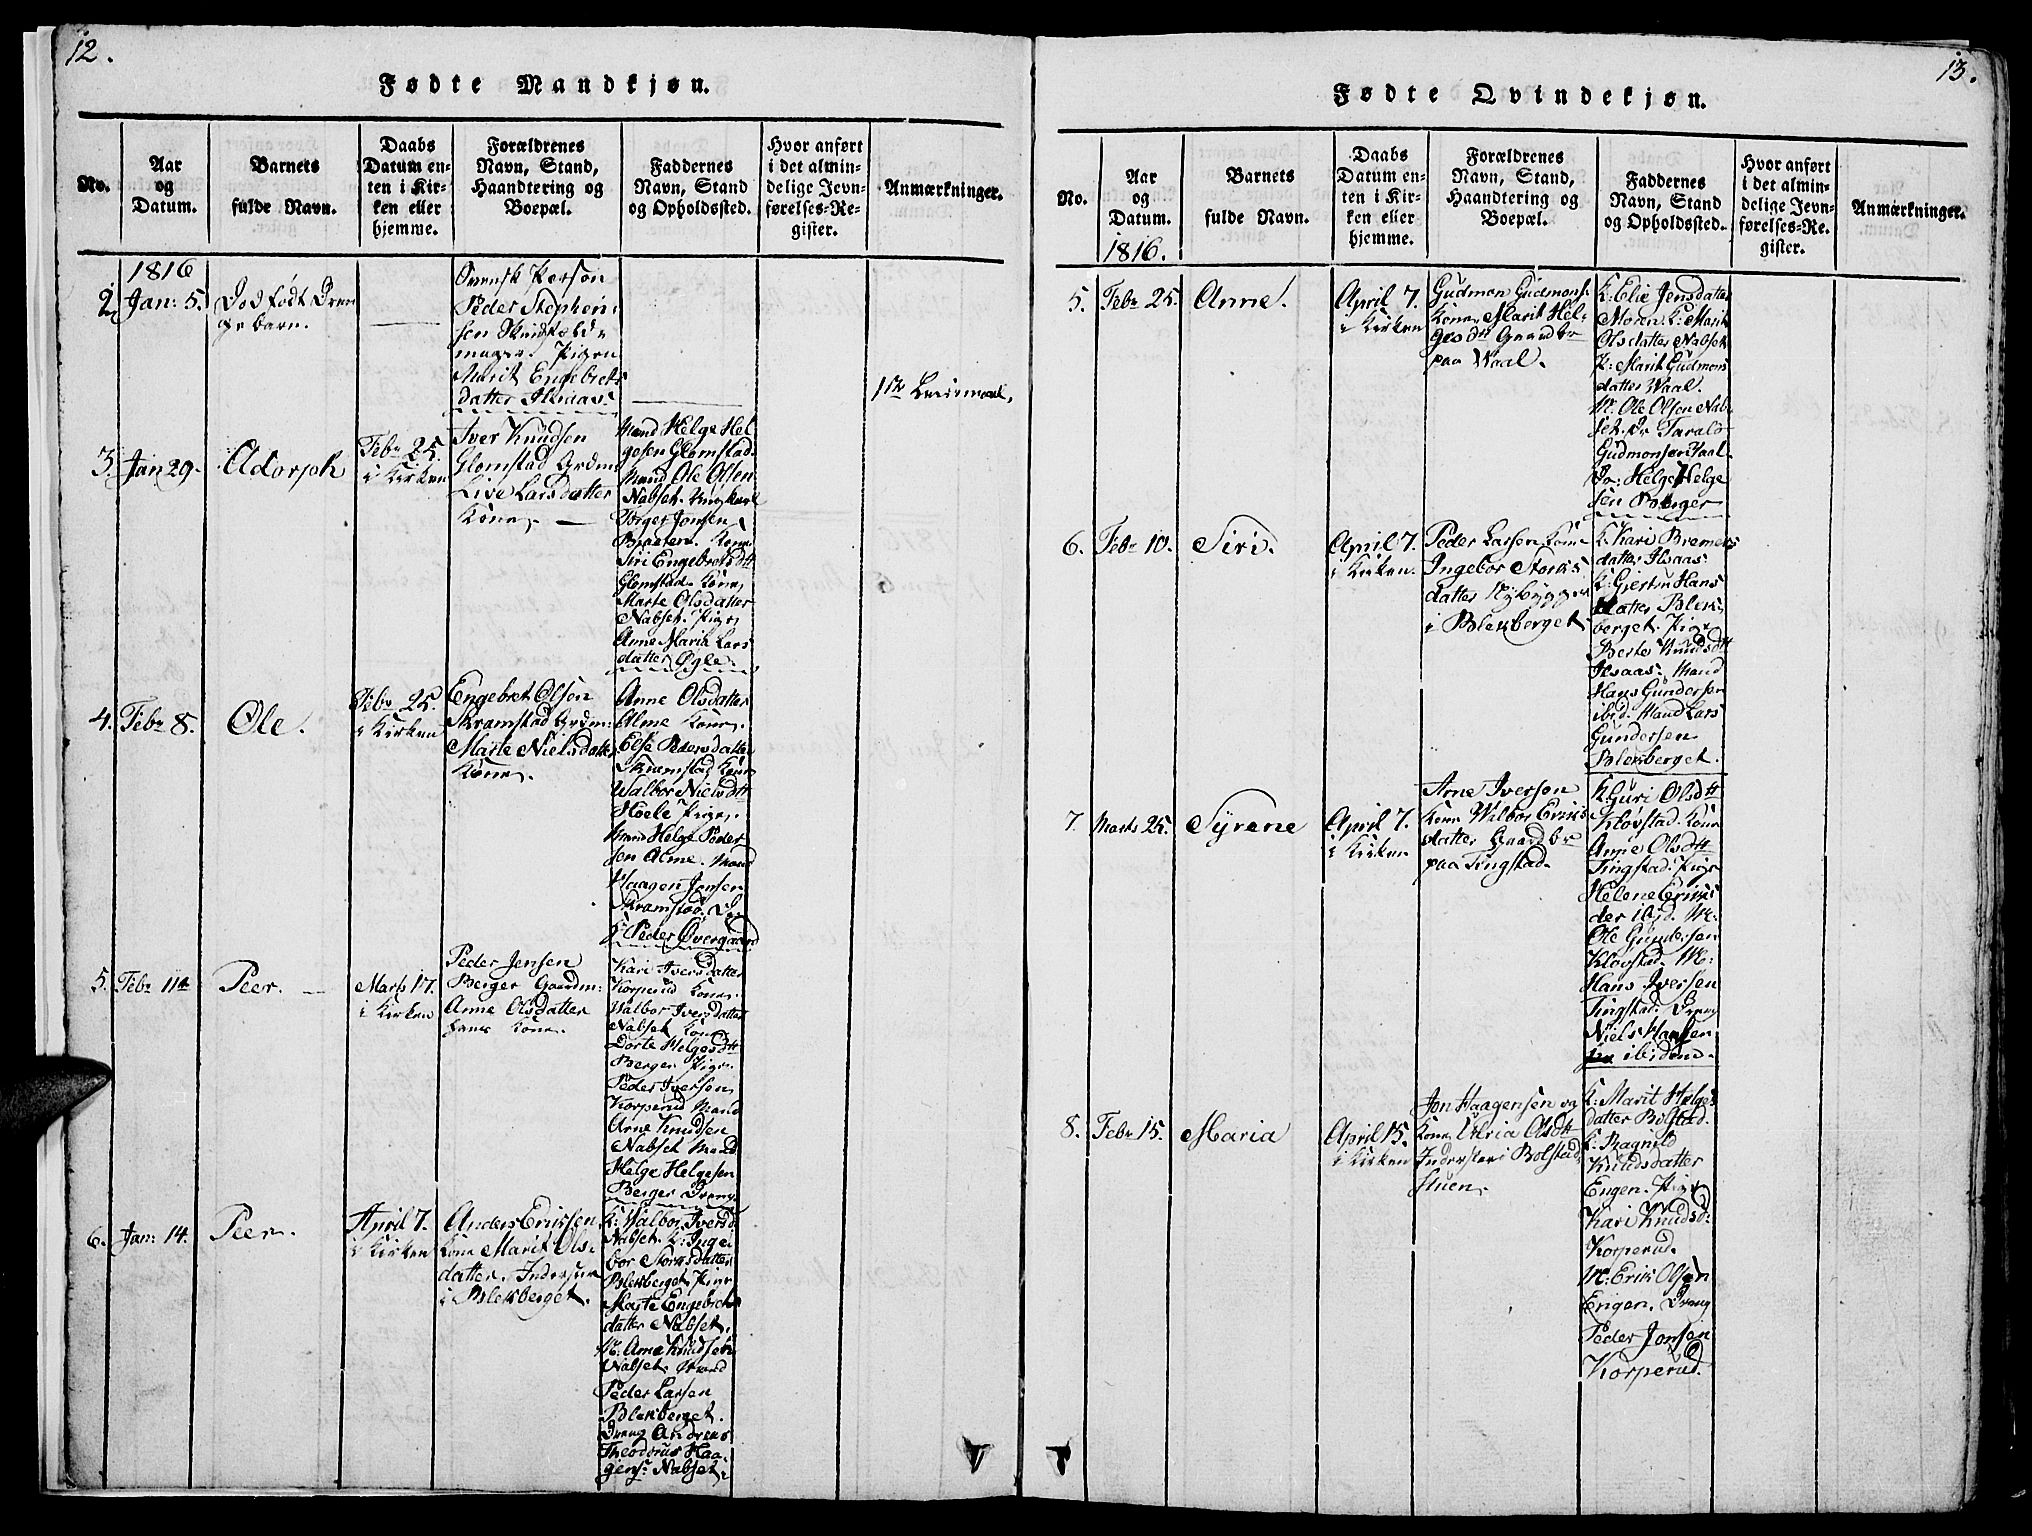 12.
Fødte Mandkjøn.
No.
Aar
og
Datum.
Barnets
fulde Navn.
Daabs
Datum en-
ten i Kir-
ken eller
hjemme.
Forældrenes
Navn, Stand,
Haandtering og
Boepæl.
Faddernes
Navn, Stand
og Opholdssted.
Hvor anført
i det almin-
delige Jevn-
førelses-Re-
gister.
Anmærkninger.
1816
2.
Jan: 5.
Dødfødt Dren
ge barn.
Svensk Person
Peder Stephen
sen Skindfeld-
mager. Pigen
Marit Engebrets
datter Ilsaas.
1ste Leiermaal.
3.
Jan 29.
Adorsph
Febr 25.
i Kirken
Iver Knudsen
Glomstad Grdm
Live Larsdatter
Kone.
Mand Helge Hel
gesen Glomstad.
Mand Ole Olsen
Nabset. Ungkarl
Børger Jonsen
Braaten. Kone
Siri Engebretsdtt
Glomstad. Kone
Marte Olsdatter
Nabset. Pige
Anne Marie Lars
datter Øgle.
4.
Febr 8.
Ole.
Febr 25.
i Kirken
Engebret Olsen
Skramstad Grdm:
Marte Nielsdatter
Kone.
Anne Olsdatter
Alme Kone.
Else Pedersdatter
Skramstad Kone
Walbor Nielsdtt
Hoele Pige.
Mand Helge Peder
sen Alme. Mand
Haagen Jonsen
Skramstad. Dr.
K Peder Øvergaard
5.
Febr 11te
Peer.
Marts 17.
i Kirken
Peder Jensen
Berger Gaardm:
Anne Olsdatter
hans Kone.
Kari Iversdatter
Korperud Kone.
Walbor Iversdatter
Nabset Kone
Dorte Helgesdtt
Berger Pige.
Peder Iversen
Korperud Mand
Arne Knudsen
Nabset Mand
Helge Helgesen
Berger Dreng
6.
Jan: 14.
Peer.
April 7.
i Kirken
Anders Erikssen
Kone Marit Ols-
datter. Inderster
i Bleksberget.
K: Walbor Iversd
Nabset. K: Inge
bor Storksdatter
Bleksberget. Pige
Marte Engebrets
datter Nabset.
M: Arne Knudsen
Nabset. Mand
Peder Larsen
Bleksberget.
Dreng Andreas
Theodorus Haa-
gens: Nabset.
13.
Fødte Qvindekjøn.
No.
Aar
og
Datum.
Barnets
fulde Navn.
Daabs
Datum en-
ten i Kir-
ken eller
hjemme.
Forældrenes
Navn, Stand,
Haandtering og
Boepæl.
Faddernes
Navn, Stand
og Opholdssted.
Hvor anført
i det almin-
delige Jevn-
førelses-Re-
gister.
Anmærkninger.
1816.
5.
Febr 25.
Anne.
April 7.
i Kirken
Gudmon Gudmons:
Kone Marit Hel-
gesdtt Gaardbr
paa Waal.
K: Elie Jensdatter
Moren. K: Marit
Olsdatter Nabset
P: Marit Gudmons
datter Waal.
M. Ole Olsen Nab-
set. Dr Taral
Gudmonsen Vaal.
Dr: Helge Helge
sen Berger
6.
Febr 10.
Siri.
April 7.
i Kirken.
Peder Larsen Kone
Ingebor Storks
datter Nybygger
i Bleksberget
K: Kari Bremers
datter Ilsaas.
K: Gjertru Hans
datter Bleks
berget. Pige
Berte Knudsdtt
Ilsaas. Mand
Hans Gundersen
ibid. Mand Lars
Gundersen
Bleksberget.
7.
Marts 25.
Syrene
April 7.
i Kirken
Arne Iversen
Kone Wilbor Eriks
datter Gaardbr
paa Tingstad.
K. Guri Olsdtt
Klovstad. Kone
Anne Olsdtt
Tingstad. Pige
Helene Eriks
der ibid. M:
Ole Gundersen
Klovstad. M:
Hans Iversen
Tingstad. Dreng
Niels Hansen
ibidem.
8.
Febr 15.
Maria
April 15.
i Kirken
Jon Haagensen og
Kone Maria Olsdtt
Inderster i Bolstad
stuen.
K: Marit Helges
datter Bolstad.
K: Ragnild
Knudsdatter
Engen. Pige
Kari Knudsd:
Korperud.
M: Erik Olsen
Engen. Dreng
Peder Jonsen
Korperud.